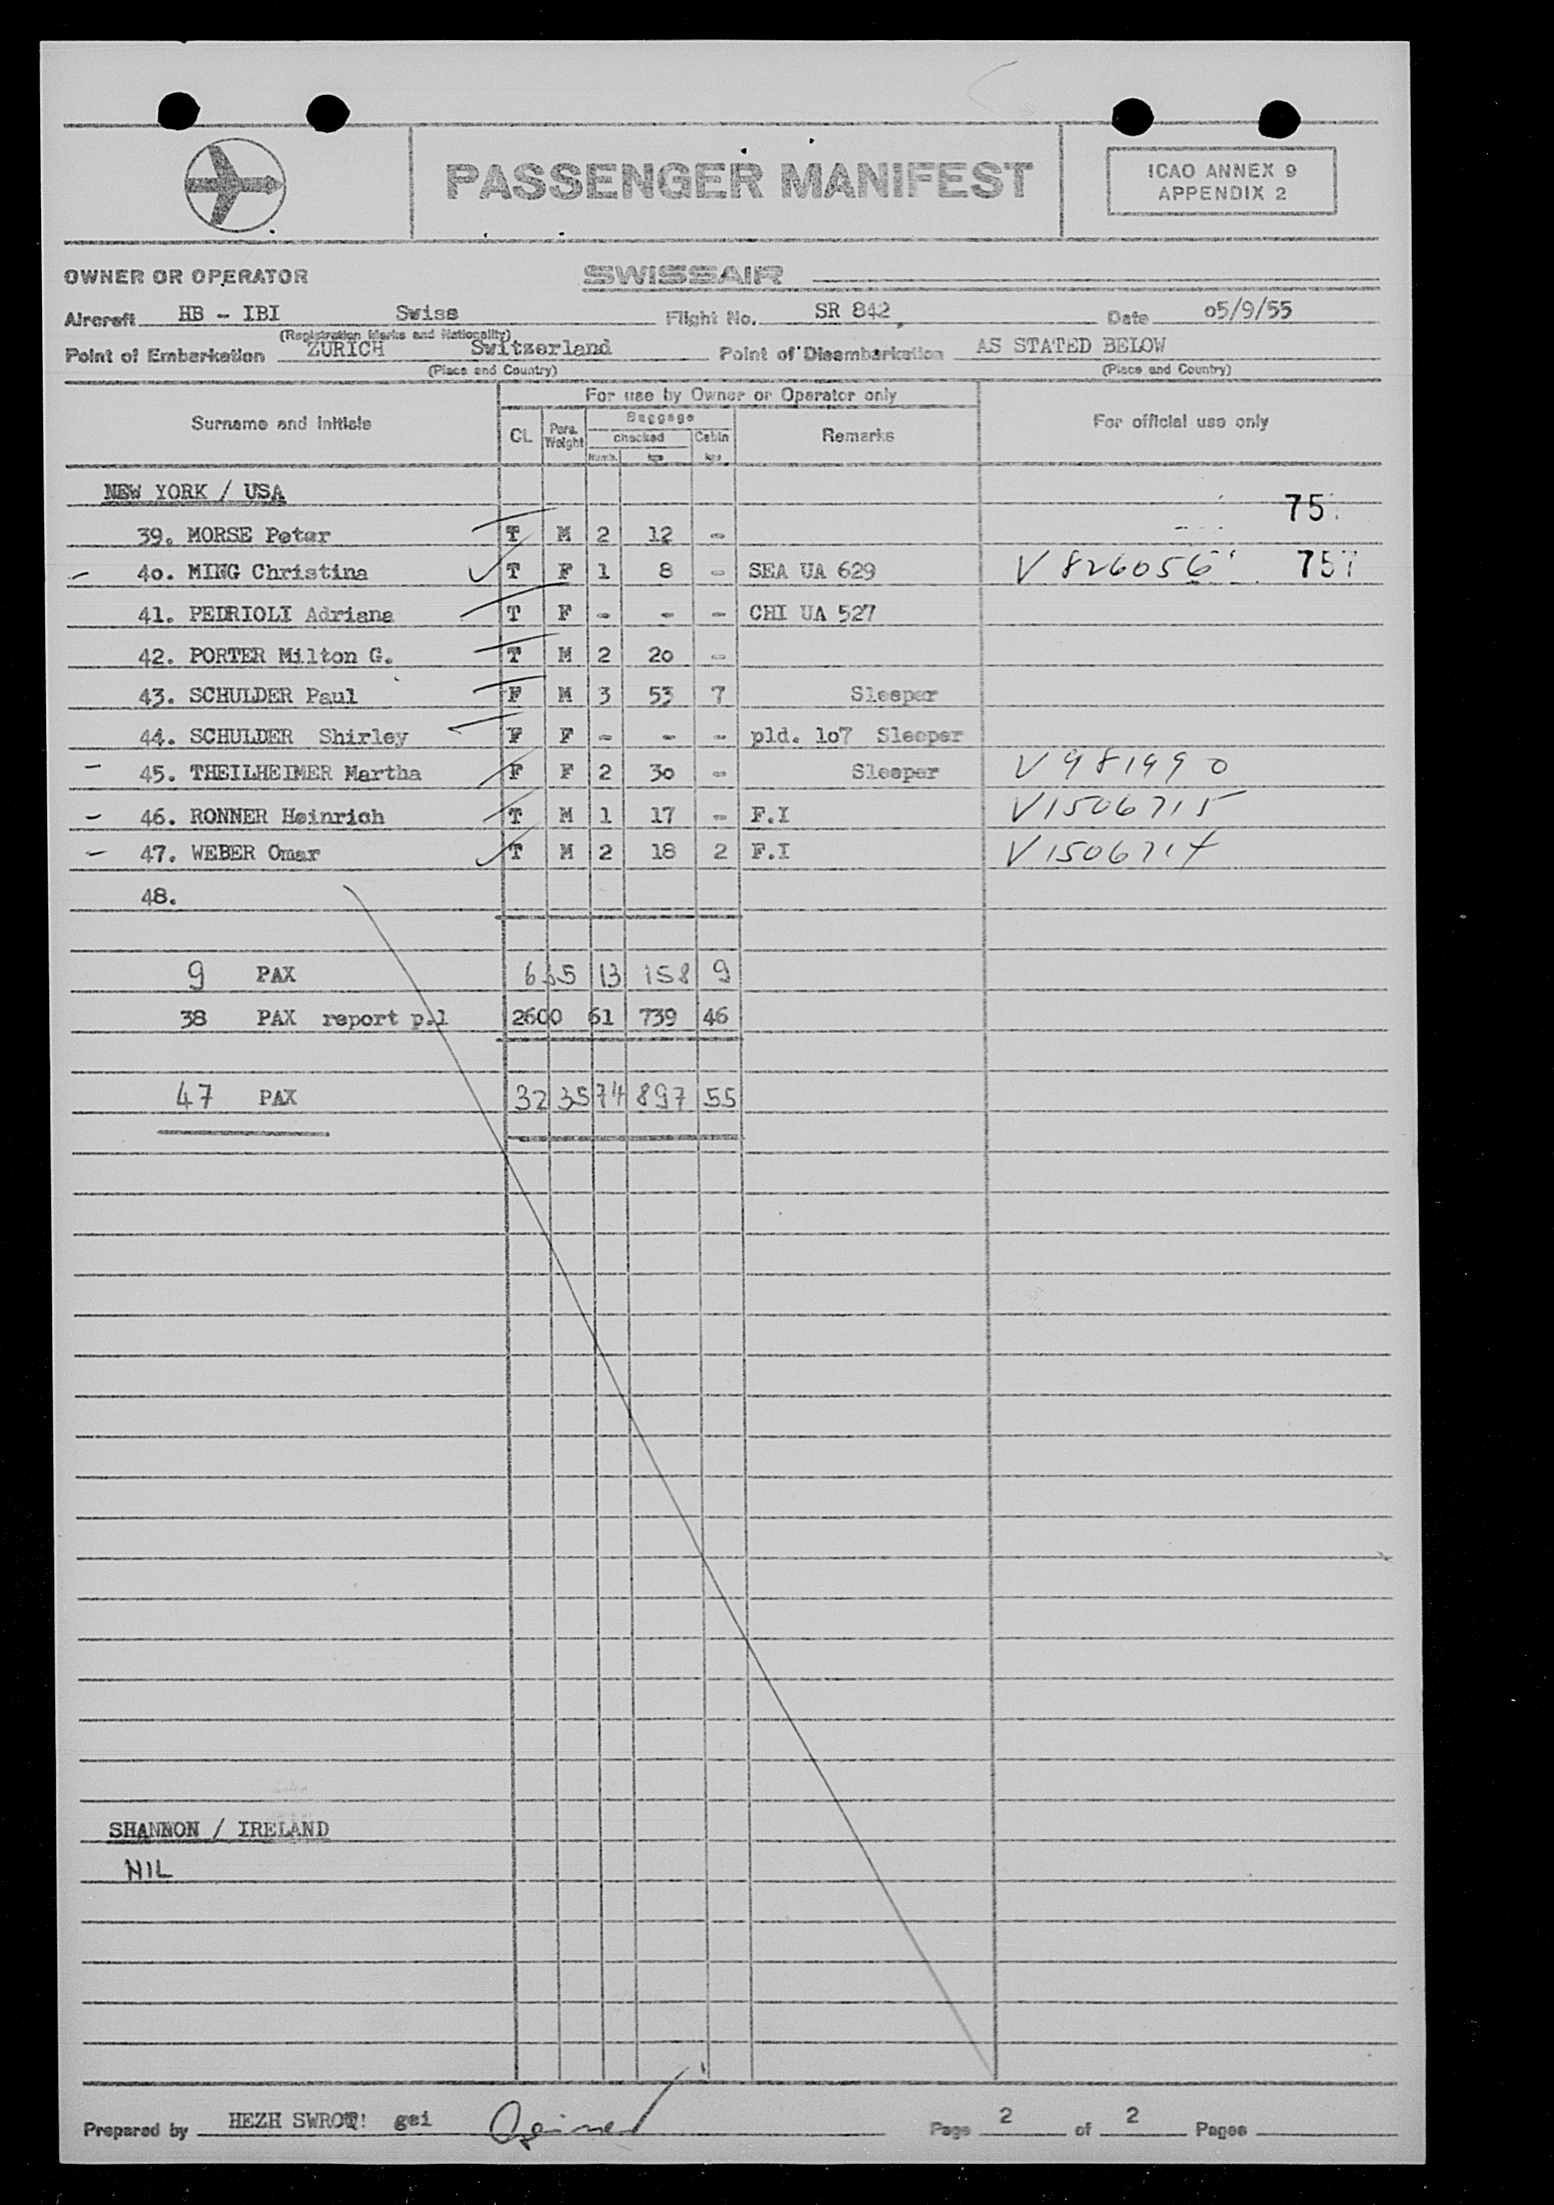 PASSENGER MANIFEST
ICAO ANNEX 9
APPENDIX 2
OWNER OR OPERATOR SWISSAIR
Aircraft HB - IBI Swiss Flight No. SR 842 Date o5/9/55
(Registration Marks and Nationality)
Point of Embarkation ZURICH Switzerland Point of Disembarkation AS STATED BELOW
(Place and Country) (Place and Country)
For use by Owner or Operator only
Surname and initials CL Pers. Weight Baggage checked Numb. kgs Cabin kgs Remarks For official use only
NEW YORK / USA
75
39. MORSE Peter T M 2 12 -
40. MING Christina T F 1 8 - SEA UA 629 V 826056 757
41. PEDRIOLI Adriana T F - - - CHI UA 527
42. PORTER Milton G. T M 2 20 -
43. SCHULDER Paul F M 3 53 7 Sleeper
44. SCHULDER Shirley F F - - - pld. 1o7 Sleeper
45. THEILHEIMER Martha F F 2 30 - Sleeper V981990
46. RONNER Heinrich T M 1 17 - F.I V1506715
47. WEBER Omar T M 2 18 2 F.I V1506714
48.
9 PAX 635 13 158 9
38 PAX report p.1 2600 61 739 46
47 PAX 3235 74 897 55
SHANNON / IRELAND
NIL
Prepared by HEZH SWROT! gei Page 2 of 2 Pages